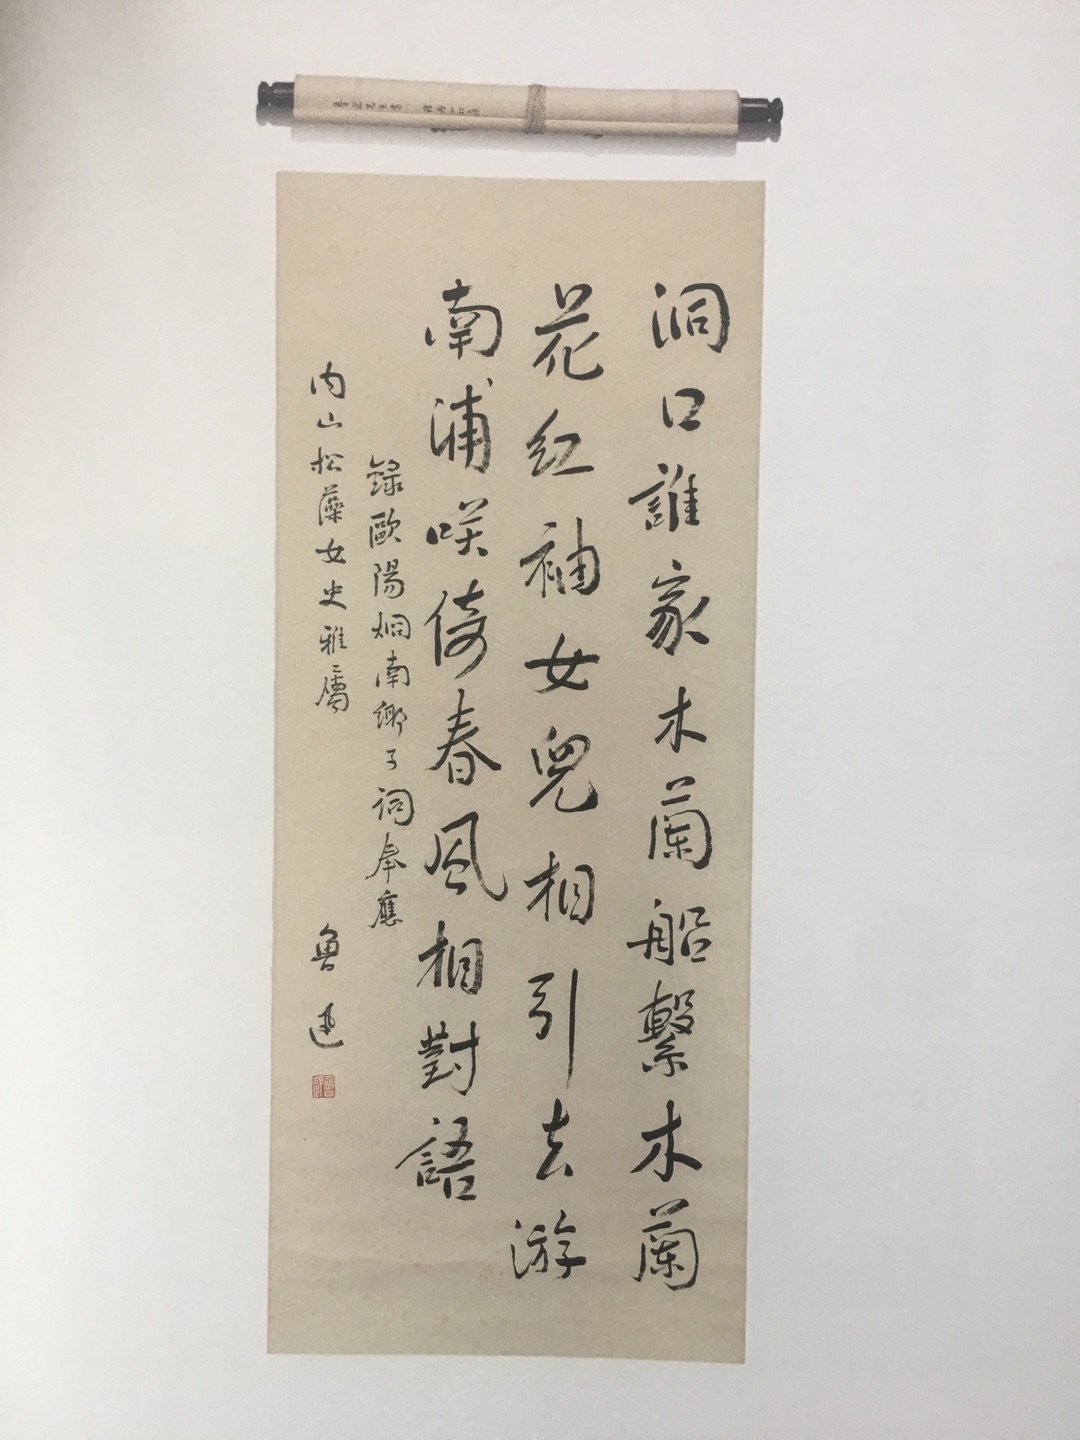 洞口誰家木蘭船繫木蘭
花红袖女兒相引去游
南浦咲倚春風相對語
錄歐陽炯南鄉子詞奉應
内山松藻女史雅屬
魯迅